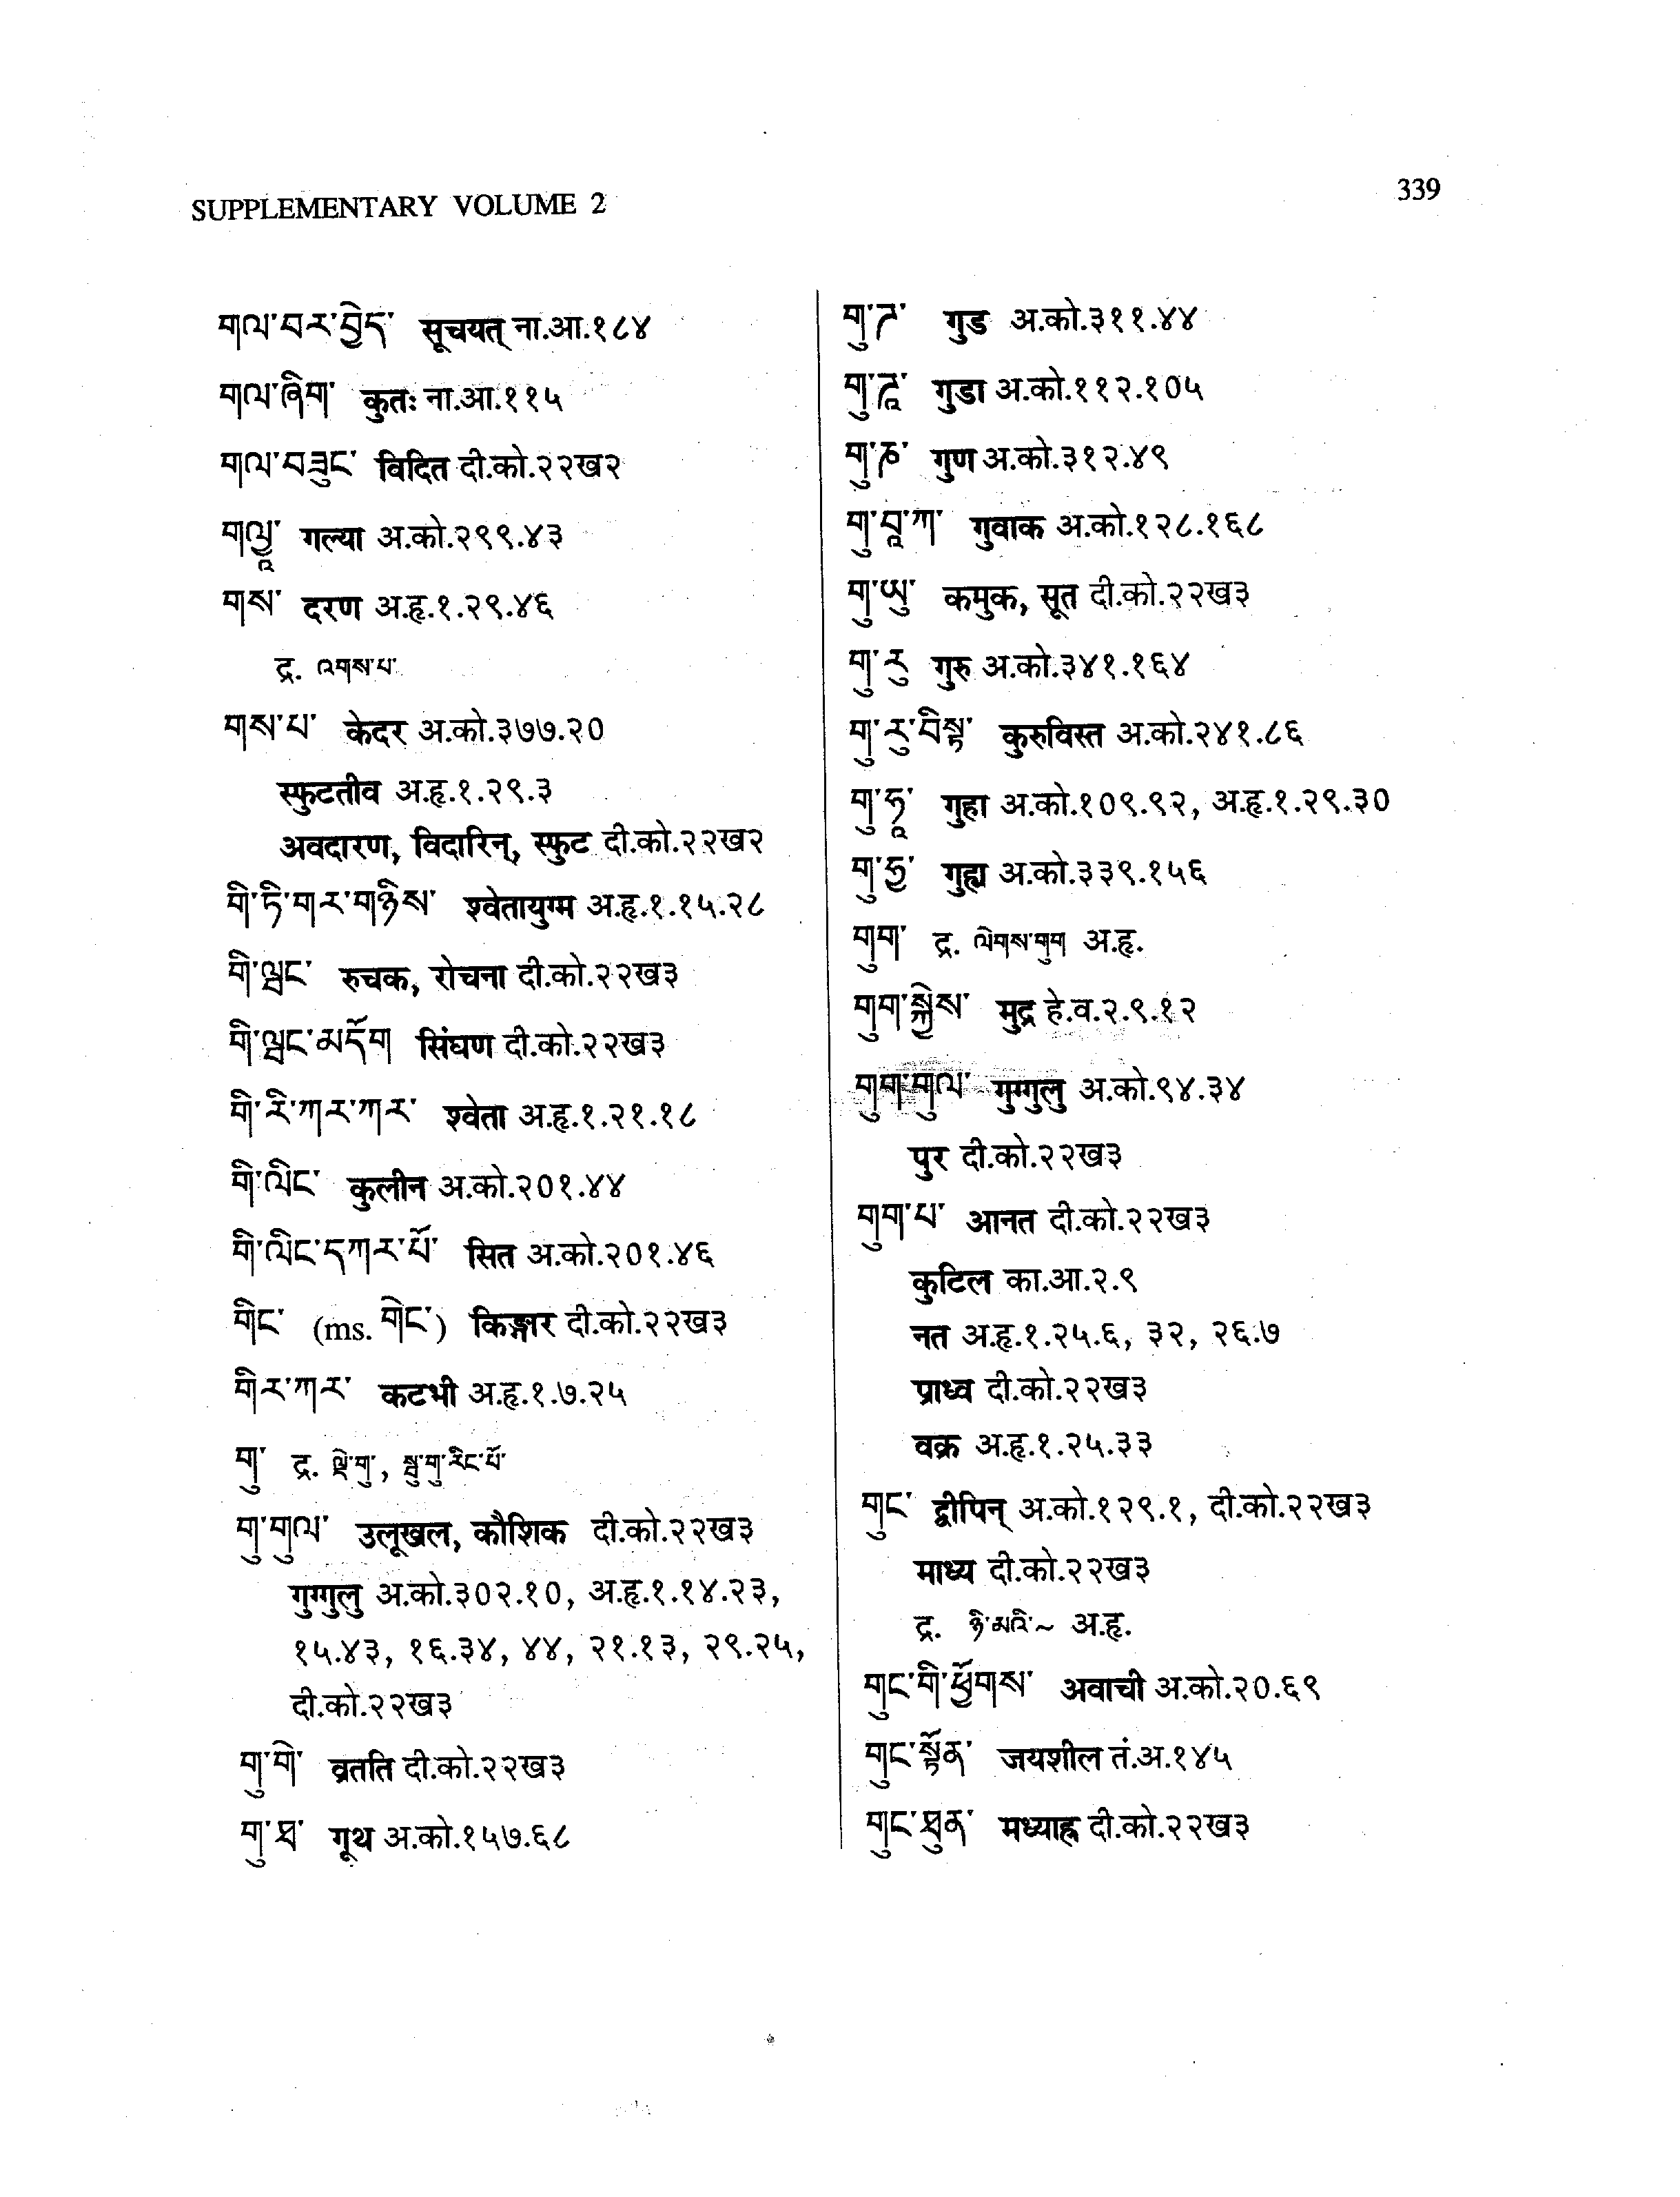 SUPPLEMENTARY VOLUME 2
339
གལ་བར་བྱེད་ सूचयत् ना.आ.१८४
གལ་ཞིག་ कुतः ना.आ.११५
གལ་བཟུང་ विदित दी.को.२२ख२
གལྱཱ་ गल्या अ.को.२९९.४३
གས་ दरण अ.हृ.१.२९.४६
द्र. འགས་པ་
གས་པ་ केदर अ.को.३७७.२०
स्फुटतीव अ.हृ.१.२९.३
अवदारण, विदारिन्, स्फुट दी.को.२२ख२
གི་ཏི་གར་གཉིས་ श्वेतायुग्म अ.हृ.१.१५.२८
གི་ལྦང་ रुचक, रोचना दी.को.२२ख३
གི་ལྦང་མདོག सिंघण दी.को.२२ख३
གི་རི་ཀར་ཀར་ श्वेता अ.हृ.१.२१.१८
གི་ལིང་ कुलीन अ.को.२०१.४४
གི་ལིང་དཀར་པོ་ सित अ.को.२०१.४६
གིང་ (ms. གེང་) किङ्कार दी.को.२२ख३
གིར་ཀར་ कटभी अ.हृ.१.७.२५
གུ་ द्र. ལྡེ་གུ་, སྦུ་གུ་རིང་པོ་
གུ་གུལ་ उलूखल, कौशिक दी.को.२२ख३
गुग्गुलु अ.को.३०२.१०, अ.हृ.१.१४.२३,
१५.४३, १६.३४, ४४, २१.१३, २९.२५,
दी.को.२२ख३
གུ་གེ་ व्रतति दी.को.२२ख३
གུ་ཐ་ गूथ अ.को.१५७.६८
གུ་ཌ་ गुड अ.को.३११.४४
གུ་ཌཱ་ गुडा अ.को.११२.१०५
གུ་ཎ་ गुण अ.को.३१२.४९
གུ་བཱ་ཀ་ गुवाक अ.को.१२८.१६८
གུ་ཡུ་ कमुक, सूत दी.को.२२ख३
གུ་རུ་ गुरु अ.को.३४१.१६४
གུ་རུ་བིསྟ་ कुरुविस्त अ.को.२४१.८६
གུ་ཧཱ་ गुहा अ.को.१०९.९२, अ.हृ.१.२९.३०
གུ་ཧྱ་ गुह्य अ.को.३३९.१५६
གུག་ द्र. ལེགས་གུག अ.हृ.
གུག་སྐྱེས་ मुद्र हे.व.२.९.१२
གུག་གུལ་ गुग्गुलु अ.को.९४.३४
पुर दी.को.२२ख३
གུག་པ་ आनत दी.को.२२ख३
कुटिल का.आ.२.९
नत अ.हृ.१.२५.६, ३२, २६.७
प्राध्व दी.को.२२ख३
वक्र अ.हृ.१.२५.३३
གུང་ द्वीपिन् अ.को.१२९.१, दी.को.२२ख३
माध्य दी.को.२२ख३
द्र. ཉི་མའི་~ अ.हृ.
གུང་གི་ཕྱོགས་ अवाची अ.को.२०.६९
གུང་སྟོན་ जयशील तं.अ.१४५
གུང་ཐུན་ मध्याह्न दी.को.२२ख३